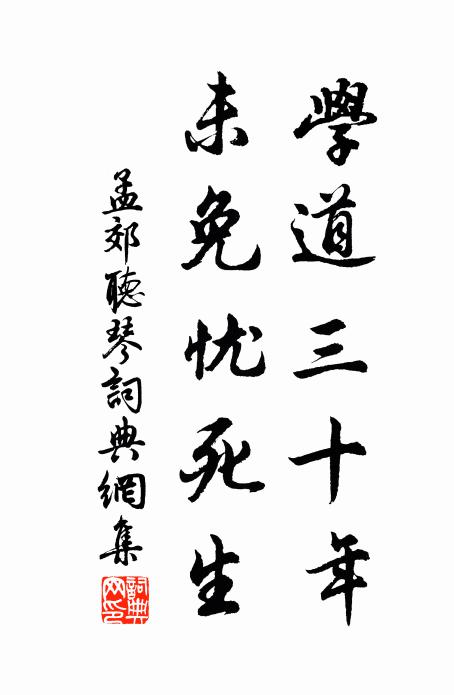 學道三十年
未免忧死生
孟郊聽琴詞典網集
詞典网印